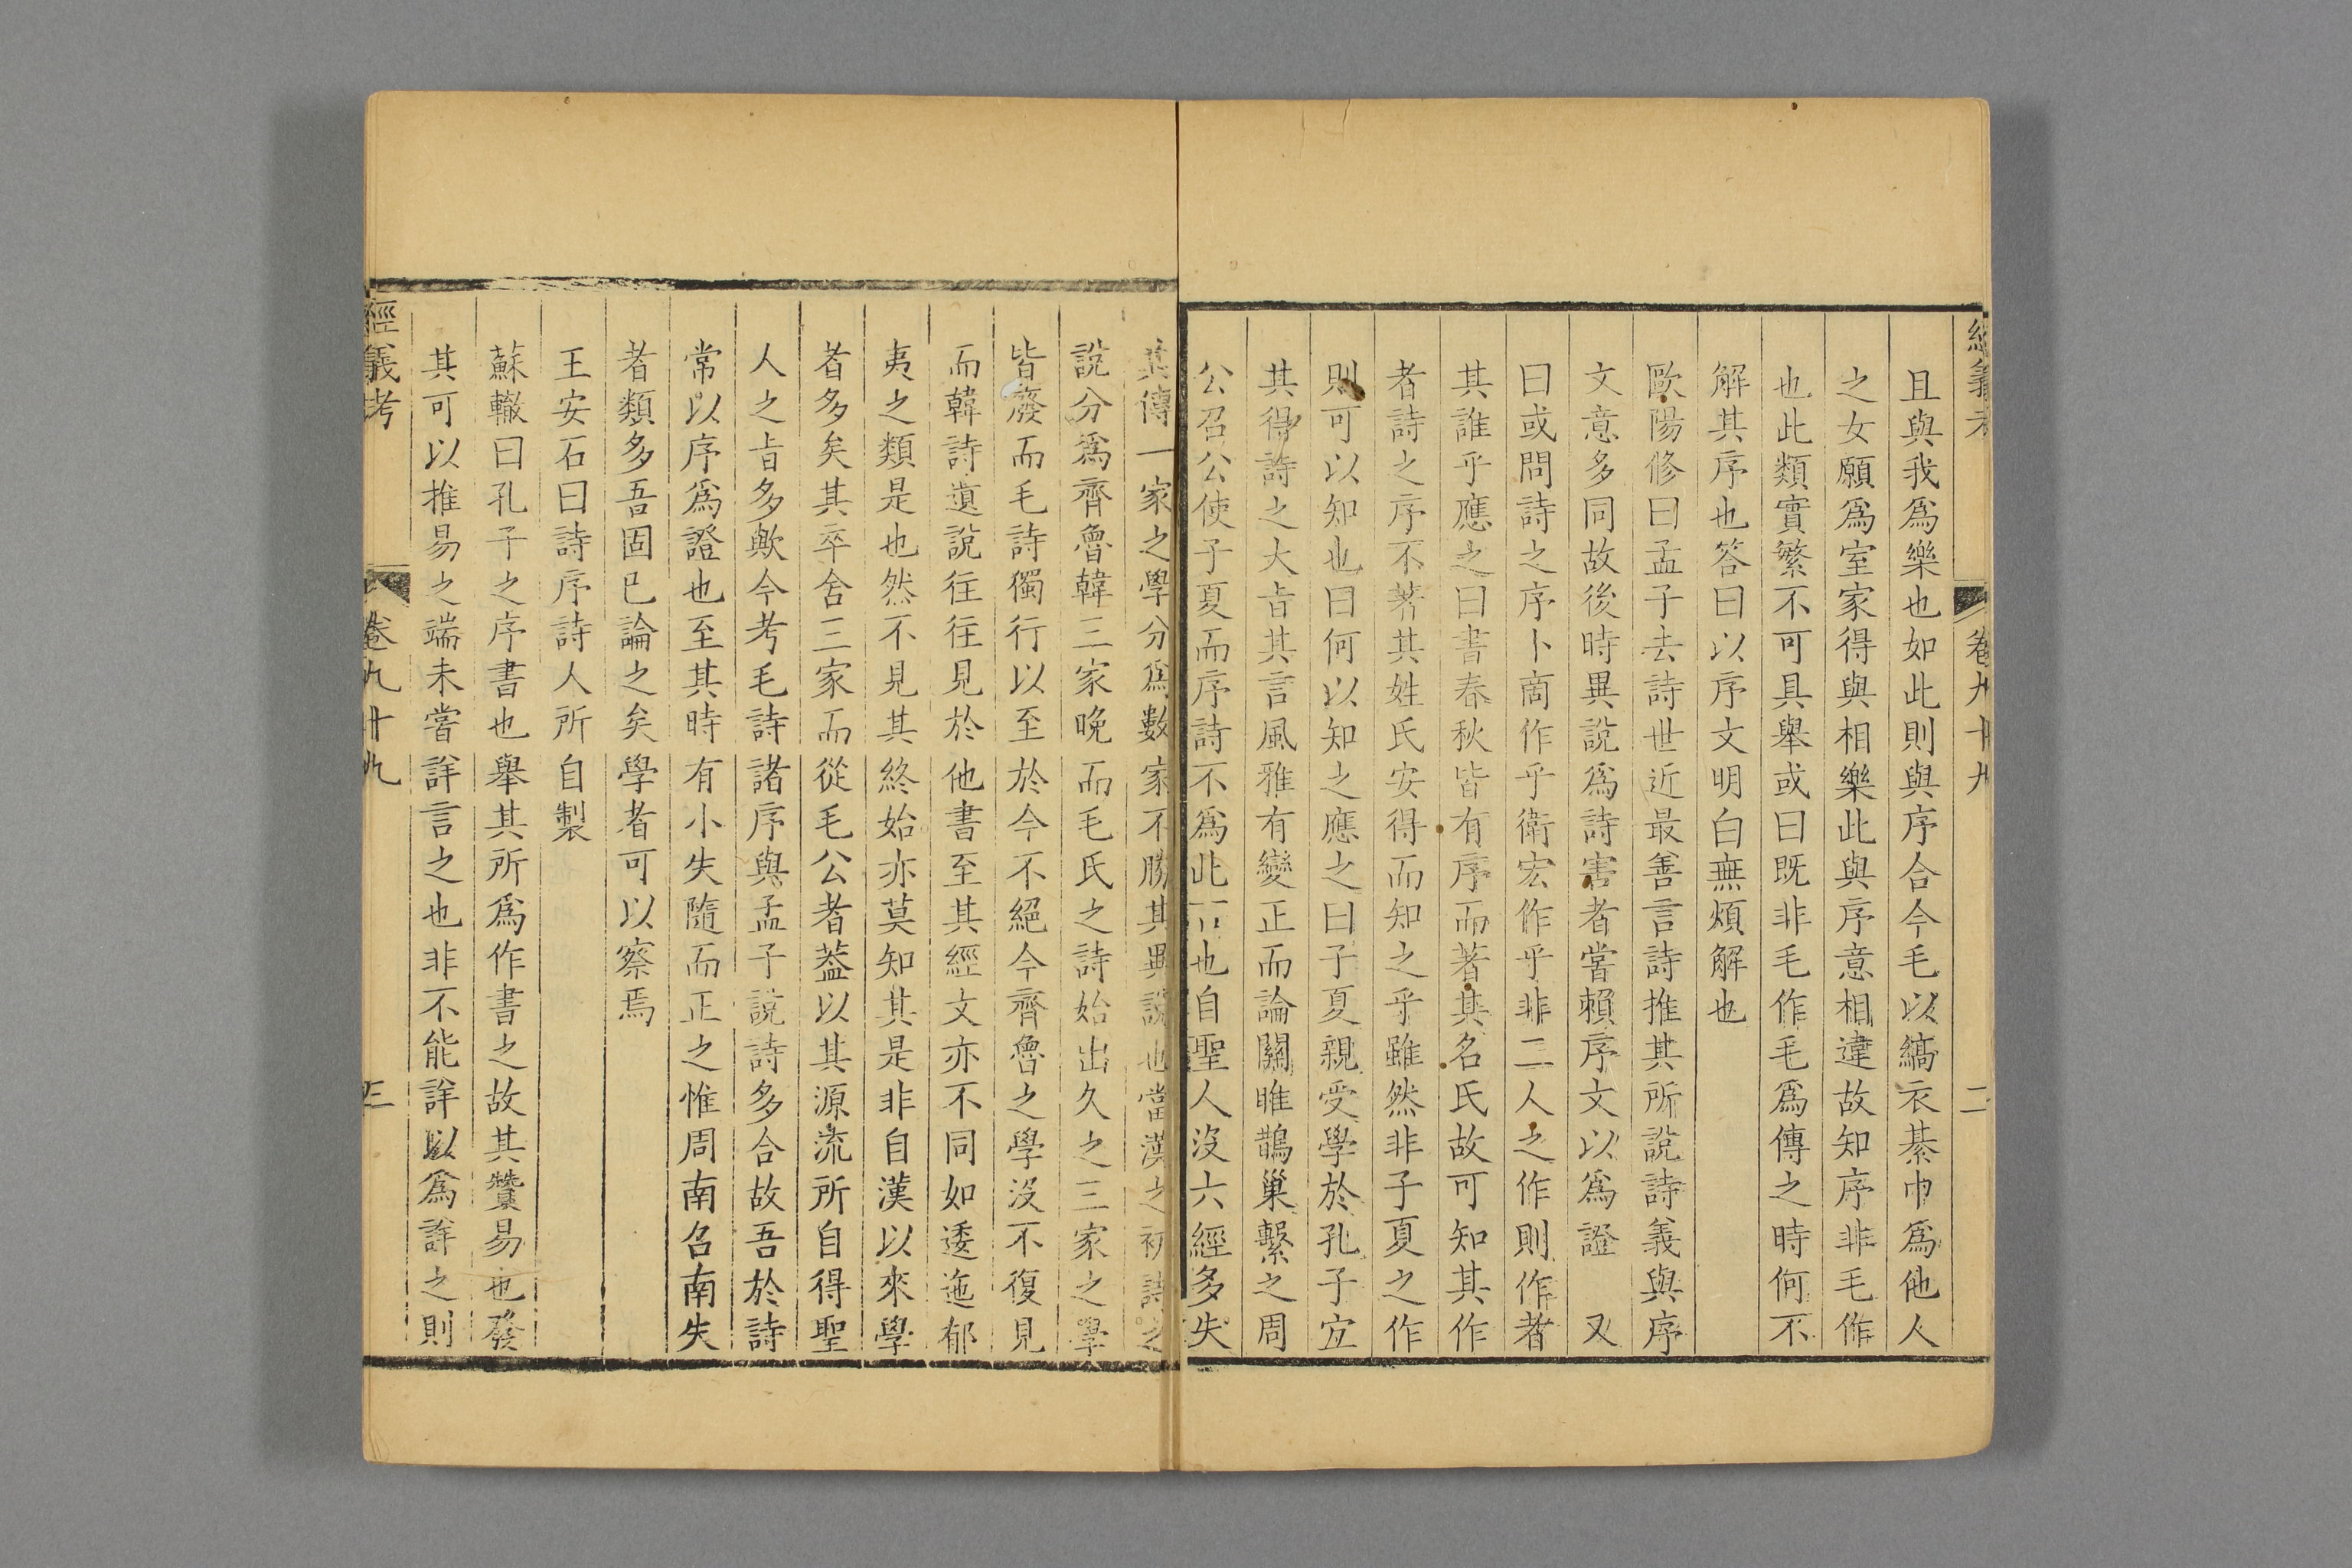 經義考 卷九十九 二
且與我爲樂也如此則與序合今毛以縞衣綦巾爲他人
之女願爲室家得與相樂此與序意相違故知序非毛作
也此類實繁不可具舉或曰既非毛作毛爲傳之時何不
解其序也答曰以序文明白無煩解也
歐陽修曰孟子去詩世近最善言詩推其所說詩義與序
文意多同故後時異說爲詩害者嘗賴序文以爲證 又
曰或問詩之序卜商作乎衛宏作乎非二人之作則作者
其誰乎應之曰書春秋皆有序而著其名氏故可知其作
者詩之序不著其姓氏安得而知之乎雖然非子夏之作
則可以知也曰何以知之應之曰子夏親受學於孔子宜
其得詩之大旨其言風雅有變正而論關雎鵲巢繫之周
公召公使子夏而序詩不爲此言也自聖人沒六經多失
其傳一家之學分爲數家不勝其異說也當漢之初詩之
說分爲齊魯韓三家晚而毛氏之詩始出久之三家之學
皆廢而毛詩獨行以至於今不絕今齊魯之學沒不復見
而韓詩遺說往往見於他書至其經文亦不同如逶迤郁
夷之類是也然不見其終始亦莫知其是非自漢以來學
者多矣其卒舍三家而從毛公者葢以其源流所自得聖
人之旨多歟今考毛詩諸序與孟子說詩多合故吾於詩
常以序爲證也至其時有小失隨而正之惟周南召南失
者類多吾固已論之矣學者可以察焉
王安石曰詩序詩人所自製
蘇轍曰孔子之序書也舉其所爲作書之故其贊易也發
其可以推易之端未嘗詳言之也非不能詳以爲詳之則
經義考 卷九十九 三